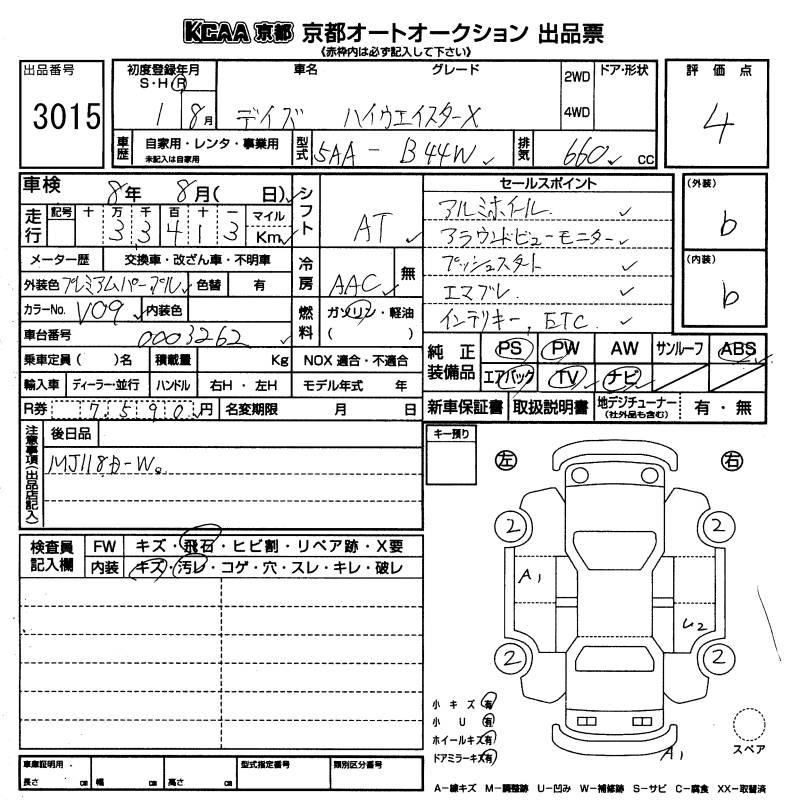 KCAA 京都 京都オートオークション 出品票
《赤枠内は必ず記入して下さい》
出品番号 3015
初度登録年月 車名 グレード 2WD ドア・形状 評価点
S・H・R 1 8月 デイズ ハイウエイスターX 4WD 4
車歴 自家用・レンタ・事業用 未記入は自家用 型式 5AA-B44W 排気 660 cc
車検 8年 8月( 日) シフト AT
走行 記号 十 万 千 百 十 一 マイル
3 3 4 1 3 Km
メーター歴 交換車・改ざん車・不明車 冷房 AAC 無
外装色 プレミアムパープル 色替 有
カラーNo. V09 内装色 燃料 ガソリン・軽油
車台番号 0003262 ( )
乗車定員( )名 積載量 Kg NOX 適合・不適合
輸入車 ディーラー・並行 ハンドル 右H・左H モデル年式 年
R券 7,590円 名変期限 月 日
セールスポイント
アルミホイール
アラウンドビューモニター
プッシュスタート
エマブレ
インテリキー, ETC
(外装) b
(内装) b
純正装備品 PS PW AW サンルーフ ABS
エアバック TV ナビ
新車保証書 取扱説明書 地デジチューナー(社外品も含む) 有・無
注意事項(出品店記入) 後日品
MJ118D-W。
キー預り
左 右
2 2
A1
U2
2 2
A1
検査員記入欄 FW キズ・飛石・ヒビ割・リペア跡・X要
内装 キズ・汚レ・コゲ・穴・スレ・キレ・破レ
小キズ 有
小U 有
ホイールキズ 有
ドアミラーキズ 有
スペア
車庫証明用・ 長さ cm 幅 cm 高さ cm 型式指定番号 類別区分番号
A-線キズ M-調整跡 U-凹み W-補修跡 S-サビ C-腐食 XX-取替済